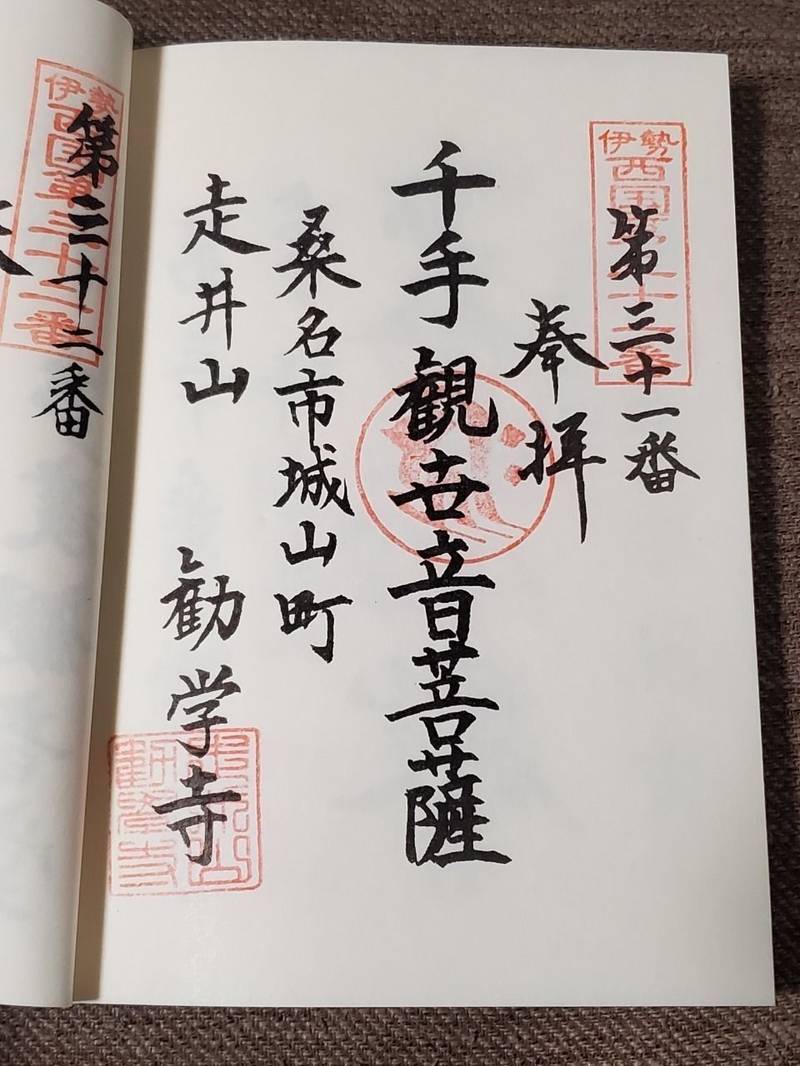 伊勢
西国第三十一番
第三十一番
奉拝
千手観世音菩薩
桑名市城山町
走井山 勧学寺
伊勢
西国第三十二番
第三十二番